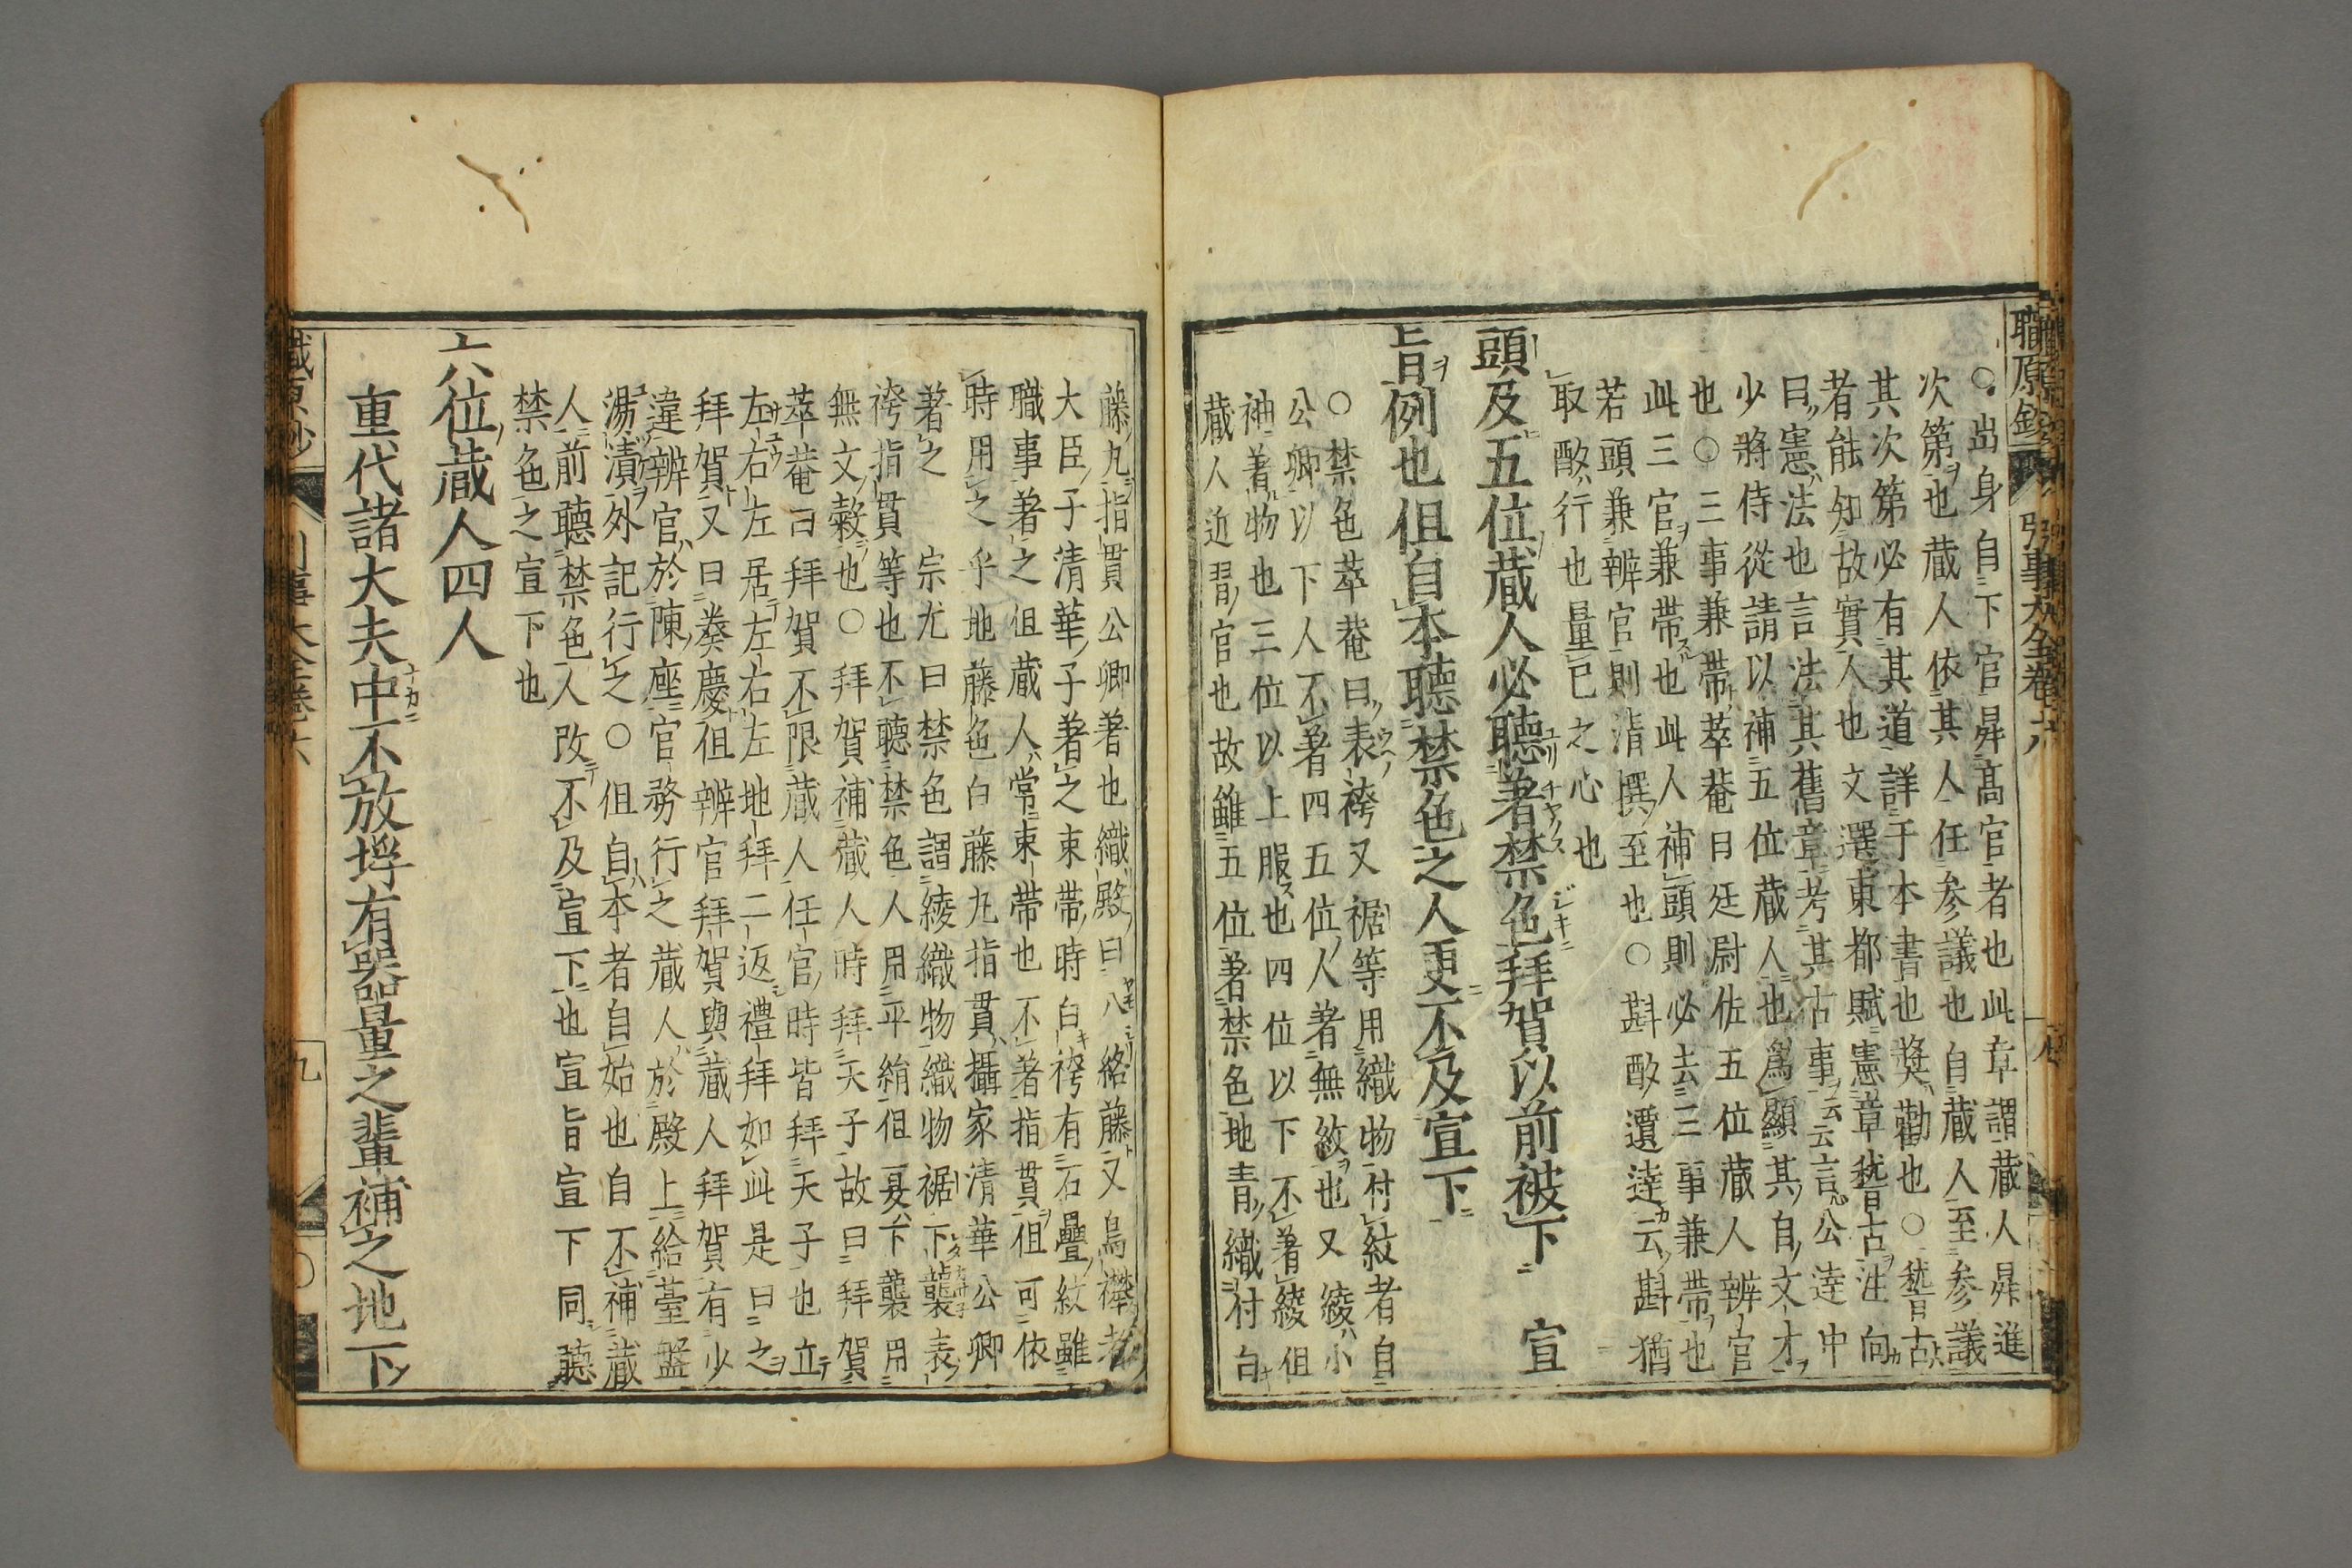 職原鈔
引事大全卷六
○出身自下官舁髙官者也此章謂蔵人舁進
次第也蔵人依其人任参議也自蔵人至参議
其次第必有其道詳于本書也奨勸也○嵆古
者能知故實人也文選東都賦憲章嵆古注向
曰憲法也言法其舊章考其古事云云言公逹中
少將侍從請以補五位蔵人也爲顯其自文才
也○三事兼帶萃菴曰廷尉佐五位蔵人辨官
此三官兼帶也此人補頭則必去三事兼帶也
若頭兼辨官則清撰至也○斟酌瓊逹云斟猶
取酌行也量已之心也
頭及五位蔵人必聽著禁色拜賀以前被下　宣
旨例也但自本聽禁色之人更不及宣下
○禁色萃菴曰表袴又裾等用織物付紋者自
公卿以下人不著四五位人著無紋也又綾小
神著物也三位以上服也四位以下不著綾但
蔵人近習官也故雖五位著禁色地青織付白
藤丸指貫公卿著也織殿曰八絡藤又鳥襷者
大臣子清華子著之束帶時白袴有石疊紋雖
職事著之但蔵人常束帶也不著指貫但可依
時用之乎地藤色白藤丸指貫攝家清華公卿
著之　宗尤曰禁色謂綾織物織物裾下襲表
袴指貫等也不聽禁色人用平絹但夏下襲用
無文縠也○拜賀補蔵人時拜天子故曰拜賀
萃菴曰拜賀不限蔵人任官時皆拜天子也立
左右左居左右左地拜二返禮拜如此是曰之
拜賀又曰奏慶但辨官拜賀與蔵人拜賀有少
違辨官於陳座官務行之蔵人於殿上給䑓盤
湯漬外記行之○但自本者自始也自不補蔵
人前聽禁色人改不及宣下也宣旨宣下同聽
禁色之宣下也
六位蔵人四人
重代諸大夫中不放埒有器量之輩補之地下
職原鈔
引事大全卷六
九